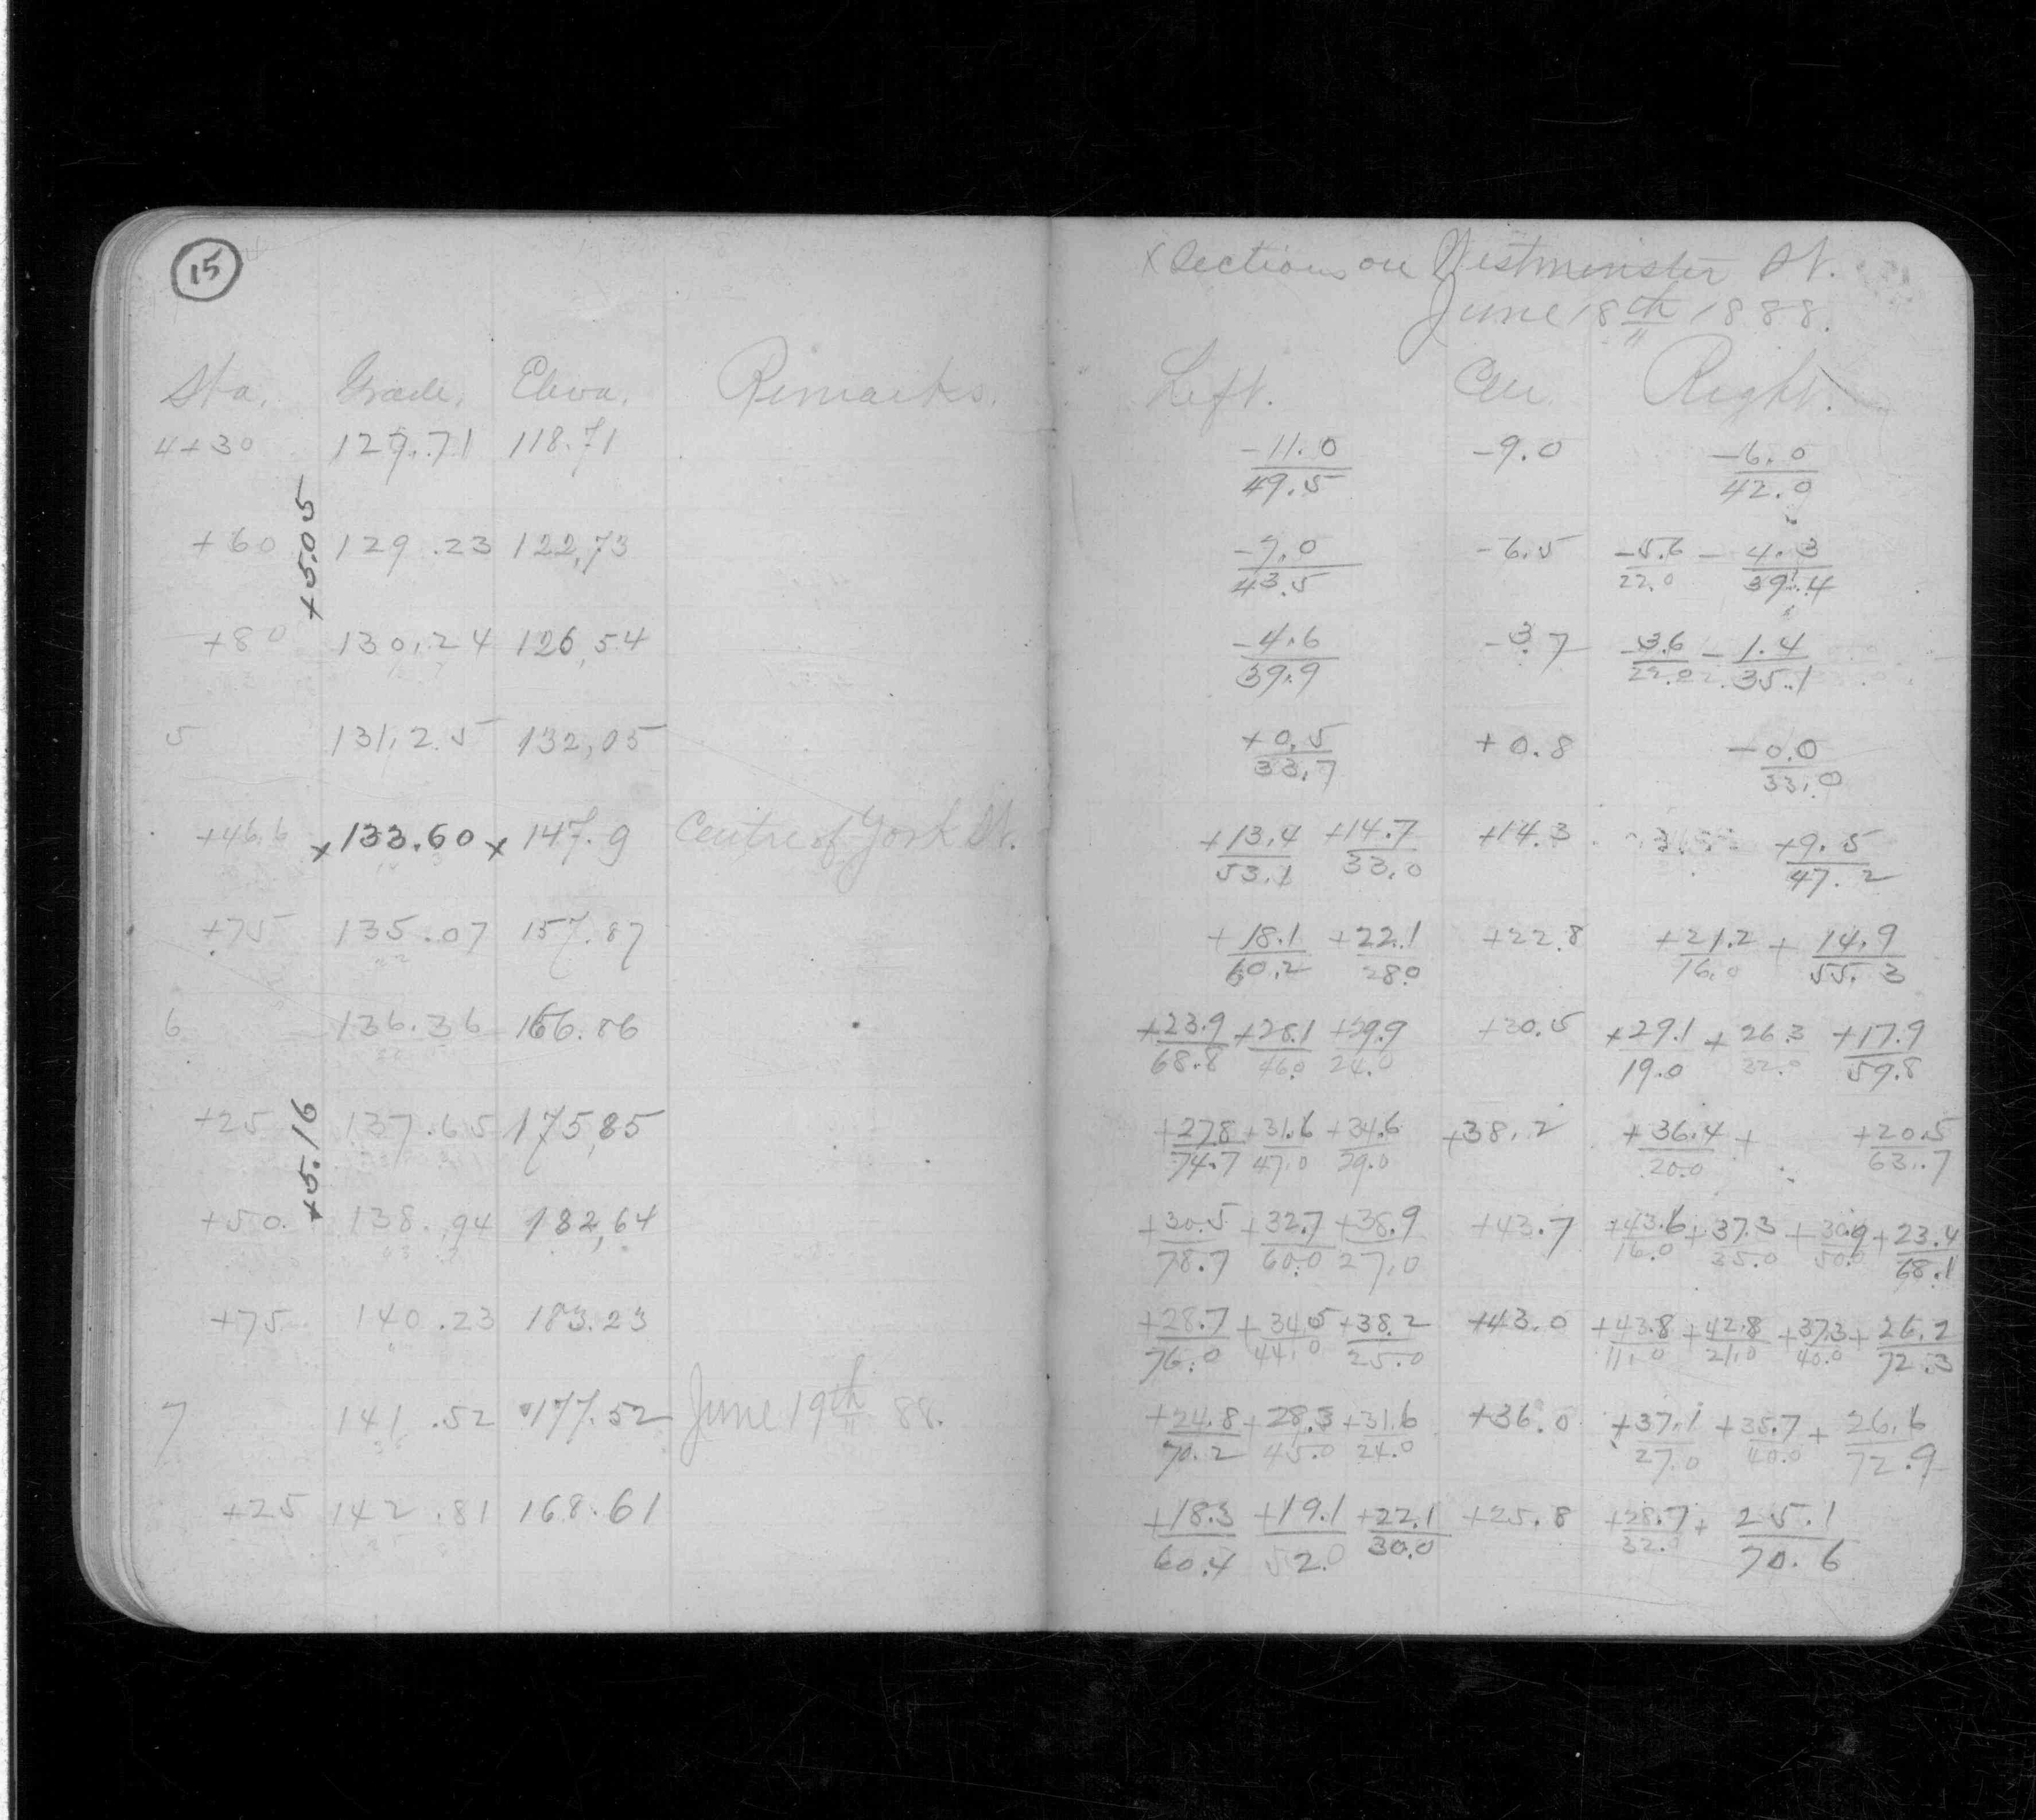 15
X Sections on Westminster St.
June 18th 1888.
Sta. Grade. Eleva. Remarks. Left. Cen. Right.
4+30 127.71 118.71 -11.0/49.5 -9.0 -6.0/42.0
+5.05
+60 129.23 122,73 -7.0/43.5 -6.5 -5.6/22.0 -4.3/39.4
+80 130,24 126,54 -4.6/39.9 -3.7 -3.6/22.0 -1.4/35.1
5 131,25 132,05 +0,5/33.7 +0.8 -0.0/33.0
+46.6 x 133.60 x 147.9 Centre of York St. +13.4/53.1 +14.7/33.0 +14.3 +9.5/47.2
+75 135.07 157.87 +18.1/60.2 +22.1/28.0 +22.8 +21.2/16.0 +14.9/55.3
6 136.36 166.86 +23.9/68.8 +28.1/46.0 +29.9/24.0 +30.5 +29.1/19.0 +26.3/32.0 +17.9/59.8
+25 137.65 175,85 +27.8/74.7 +31.6/47.0 +34.6/29.0 +38.2 +36.4/20.0 + +20.5/63.7
+5.16
+50. 138.94 182,64 +30.5/78.7 +32.7/60.0 +38.9/27.0 +43.7 +43.6/16.0 +37.3/35.0 +30.9/50.0 +23.4/68.1
+75 140.23 183.23 +28.7/76.0 +34.5/44.0 +38.2/25.0 +43.0 +43.8/11.0 +42.8/21.0 +37.3/40.0 +26.2/72.3
7 141.52 177.52 June 19th 88. +24.8/70.2 +28.3/45.0 +31.6/24.0 +36.0 +37.1/27.0 +35.7/40.0 +26.6/72.9
+25 142.81 168.61 +18.3/60.4 +19.1/52.0 +22.1/30.0 +25.8 +28.7/32.0 +25.1/70.6